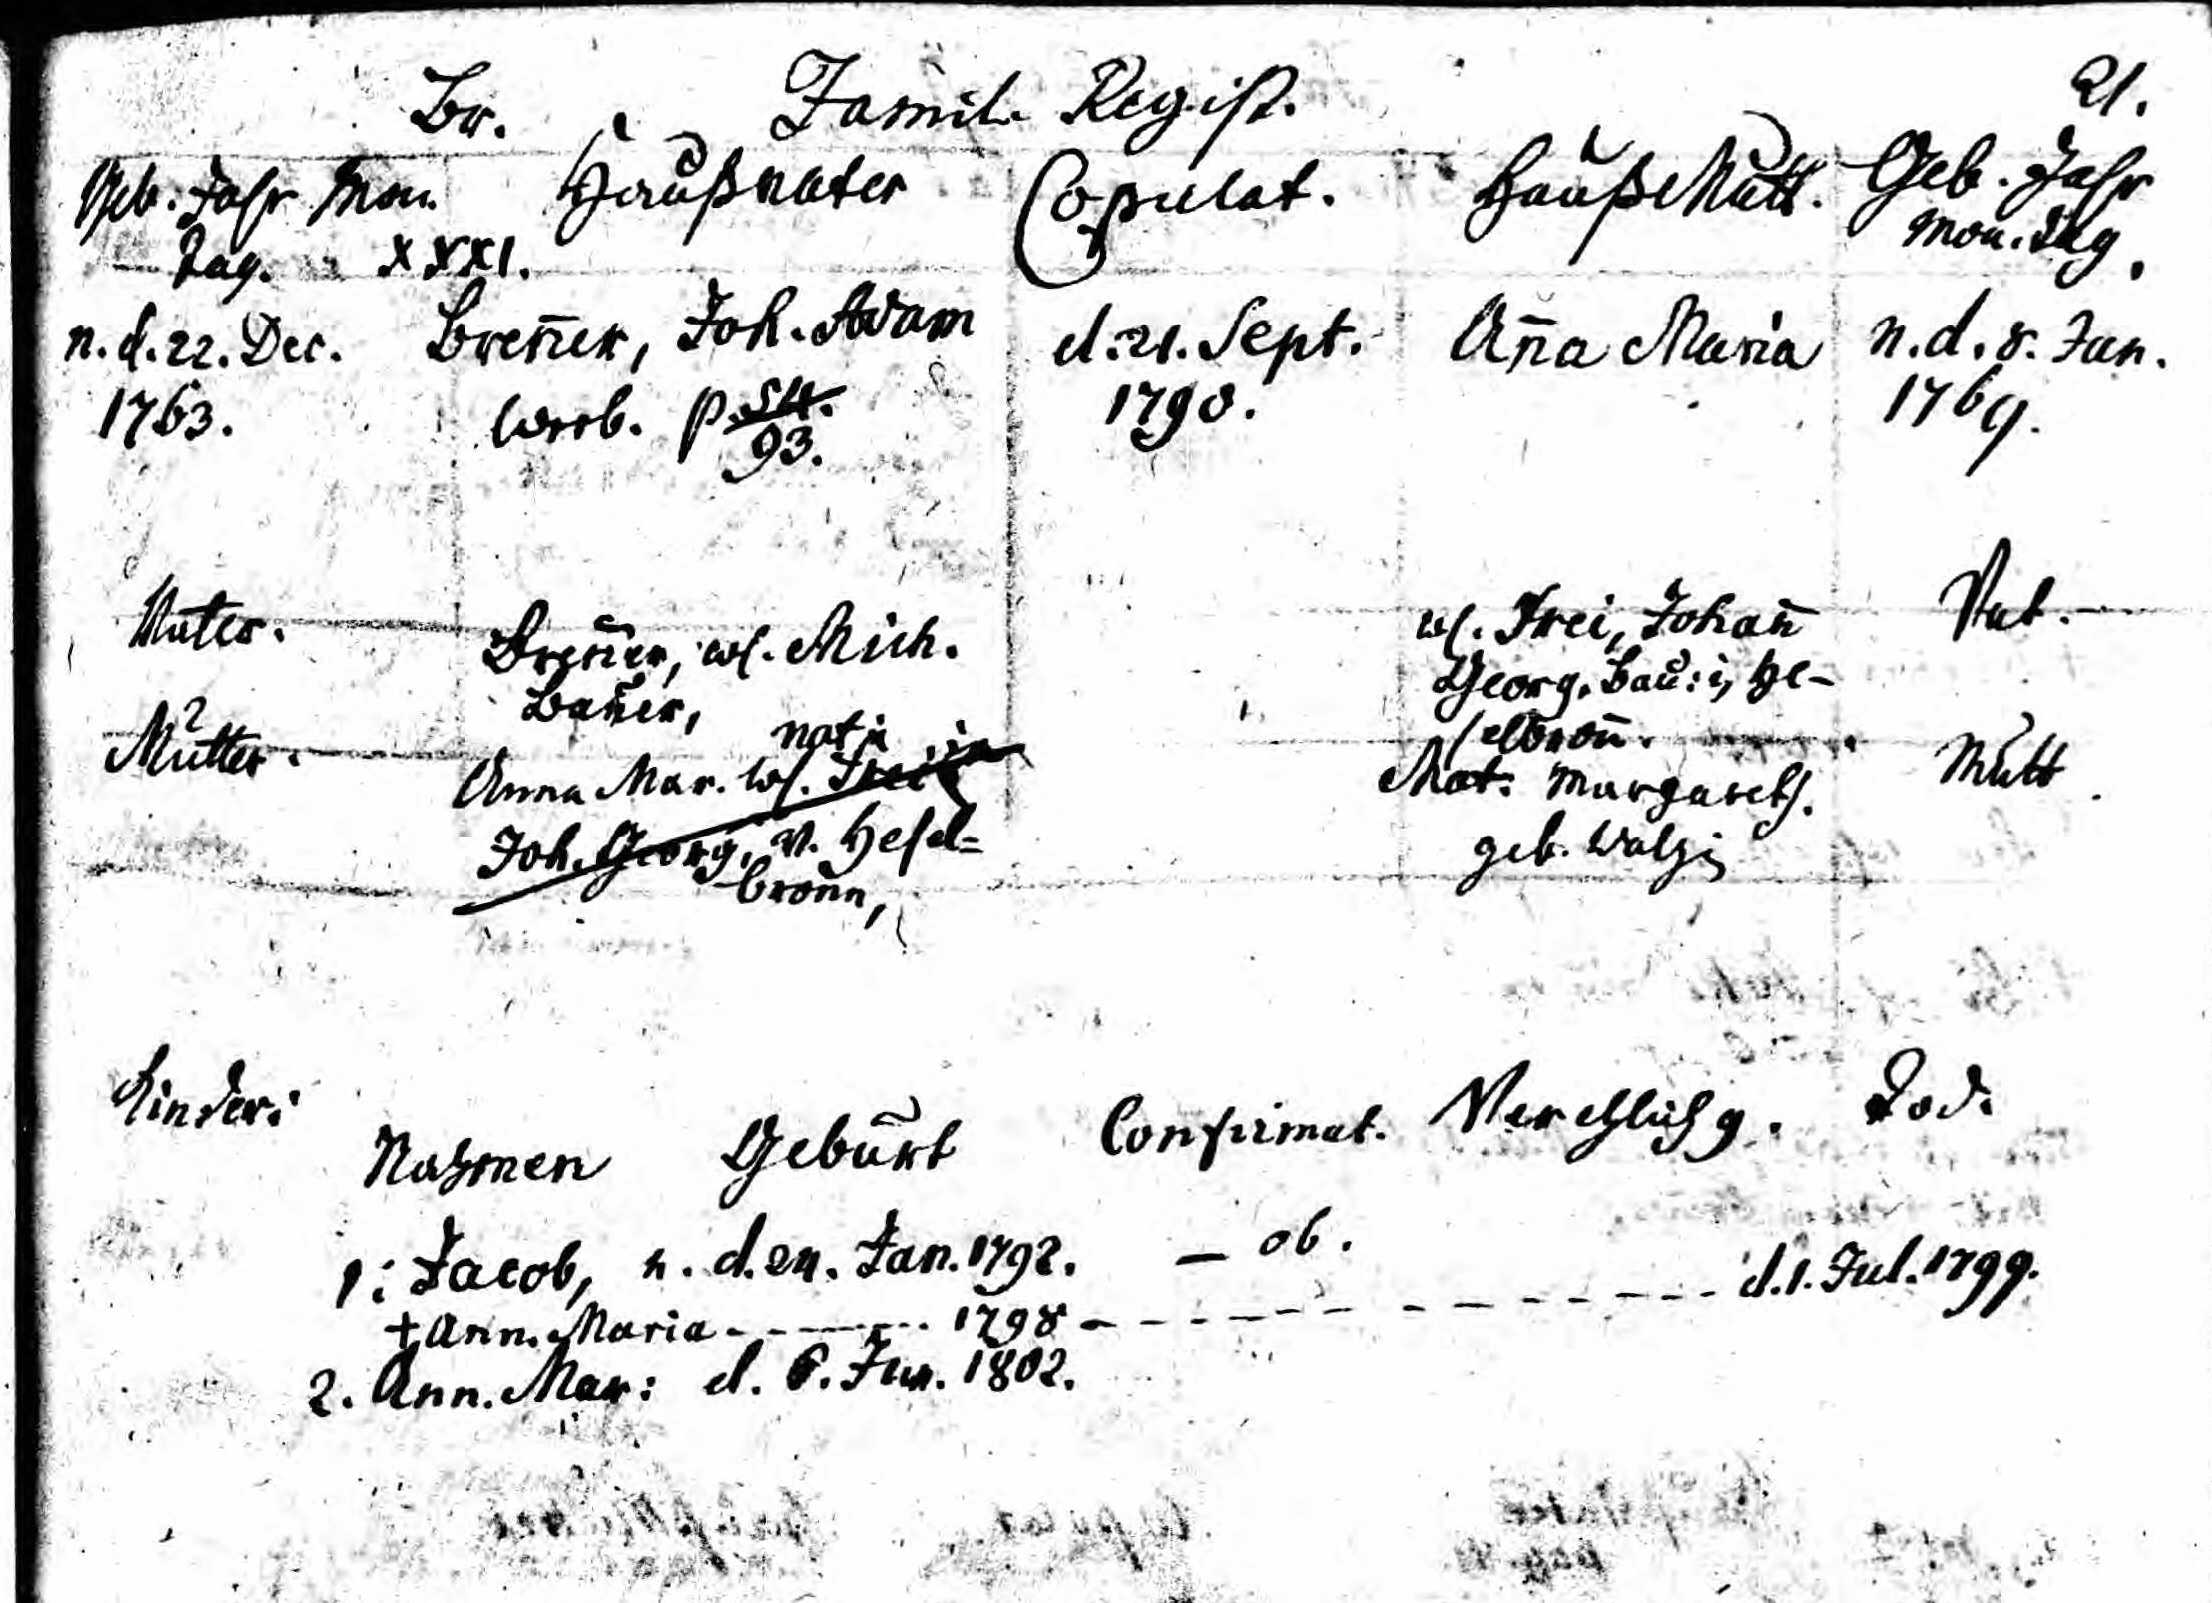 Br. Famil. Regist. 21.
Geb. Jahr Mon. Haußvater Copulat. Haußmutt. Geb. Jahr
Tag. XXXI. Mon. Tag.
n. d. 22. Dec. Breñer, Joh. Adam d. 21. Sept. Aña Maria n. d. 8. Jan.
1763. 1790. 1769.
93.
Vater. Breñer, wl. Mich. wl. Frei, Johañ Vat.
Bauer, Georg, Bau: i, He-
selbroñ.
Mutter. nat. Mat: Margareth. Mutt.
Anna Mar. wl. Frei geb. Walzi
Joh. Georg, v. Hesel=
bronn,
Kinder:
Nahmen Geburt Confirmat. Verehlichg. Tod.
1: Jacob, n. d. 24. Jan. 1792. — ob.
† Ann. Maria - - - - 1798 - - - - d. 1. Jul. 1799.
2. Ann. Mar: d. 6. Jun. 1802.